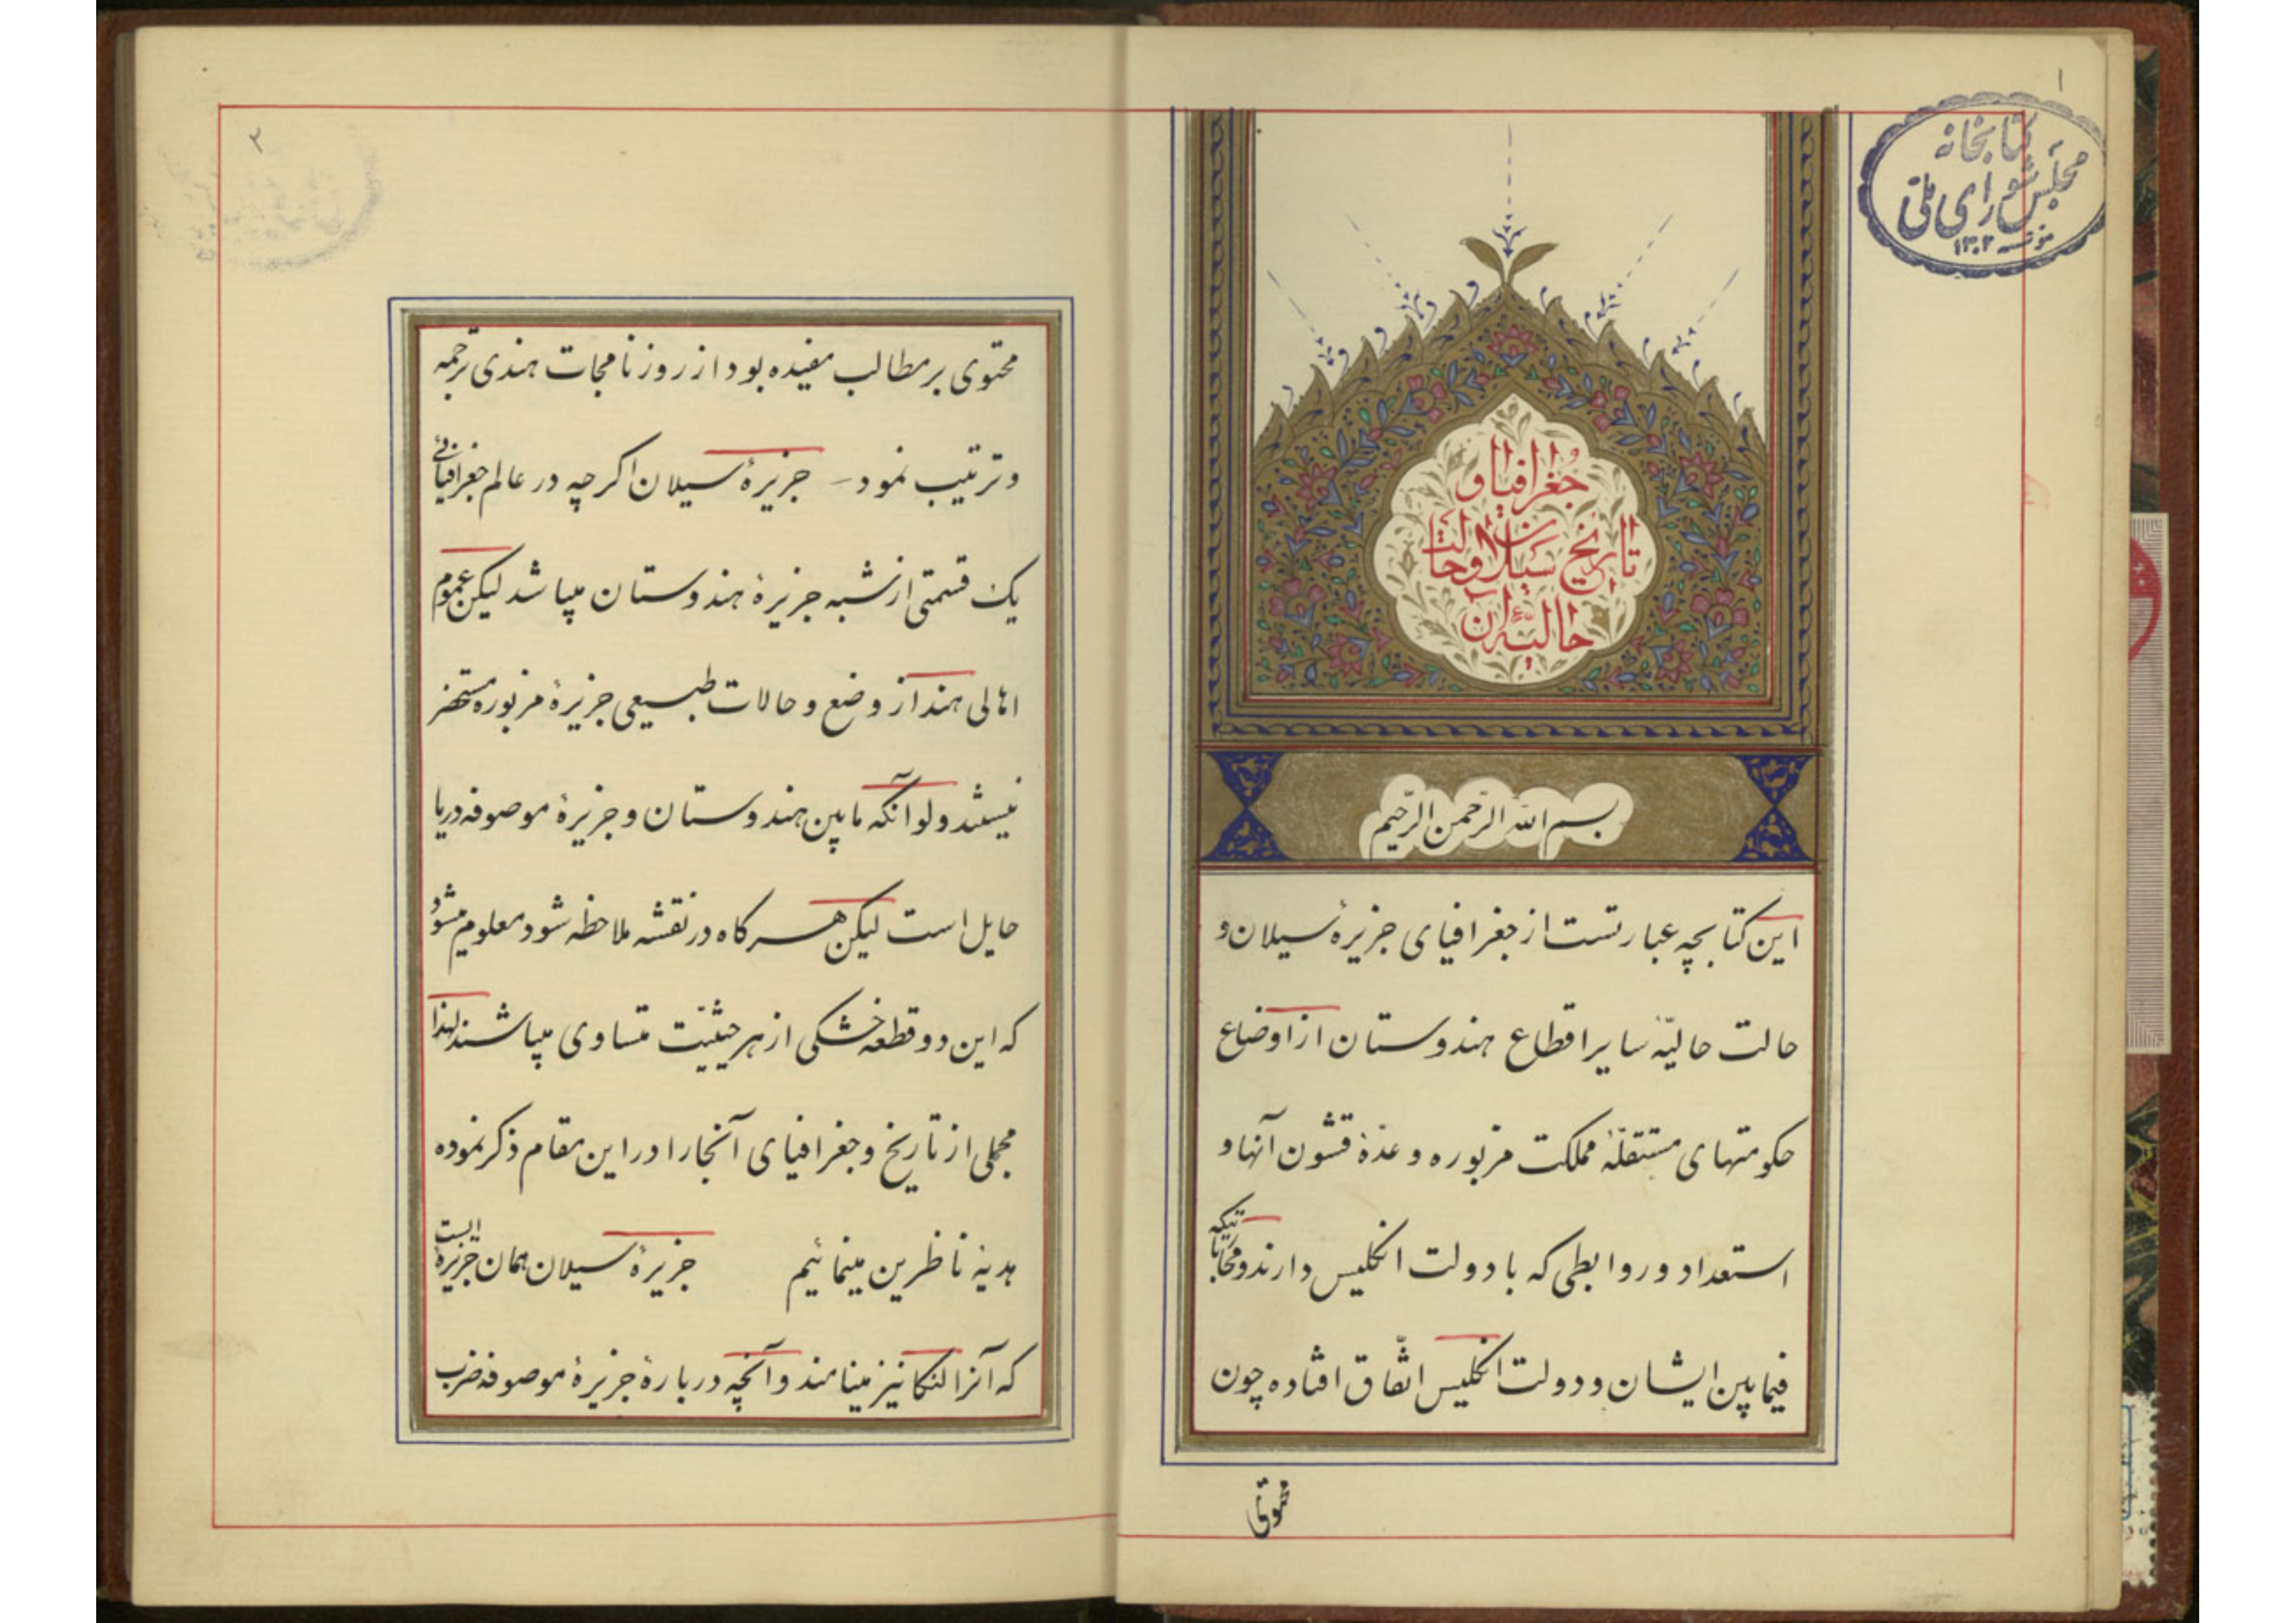 ۱
کتابخانه
مجلس شورای ملی
مؤسسه ۱۳۰۲
جغرافیا و
تاریخ سیلان و حالت
حالیه آن
بسم الله الرحمن الرحیم
این کتابچه عبارتست از جغرافیای جزیرۀ سیلان و
حالت حالیّۀ سایر اقطاع هندوستان از اوضاع
حکومتهای مستقلّۀ مملکت مزبوره و عدّۀ قشون آنها و
استعداد و روابطی که با دولت انکلیس دارند و محارباتیکه
فیمابین ایشان و دولت انکلیس اتّفاق افتاده چون
۲
محتوی بر مطالب مفیده بود از روزنامجات هندی ترجمه
و ترتیب نمود جزیرۀ سیلان اکرچه در عالم جغرافیائی
یک قسمتی از شبه جزیرۀ هندوستان میباشد لیکن عموم
اهالی هند از وضع و حالات طبیعی جزیرۀ مزبوره مستحضر
نیستند ولو آنکه مابین هندوستان و جزیرۀ موصوفه دریا
حایل است لیکن هرکاه در نقشه ملاحظه شود معلوم میشود
که این دو قطعه خشکی از هر حیثیّت متساوی میباشند لهذا
مجملی از تاریخ و جغرافیای آنجا را در این مقام ذکر نموده
هدیۀ ناظرین مینمائیم جزیرۀ سیلان همان جزیرۀ ایست
که آنرا لنکا نیز مینامند و آنچه دربارۀ جزیرۀ موصوفه ضرب